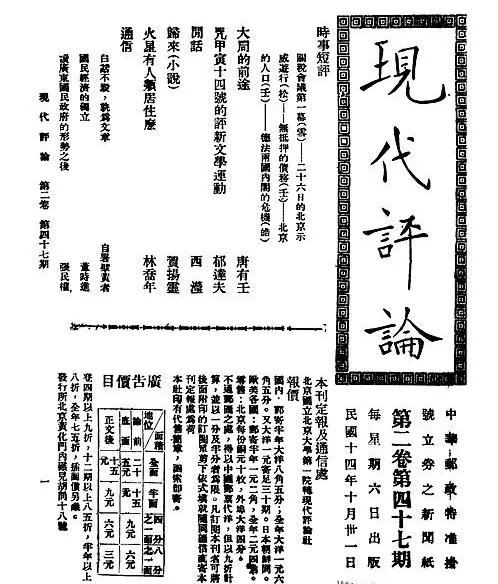 現代評論
中華郵政特准掛
號立券之新聞紙
第二卷第四十七期
每星期六日出版
民國十四年十月卅一日
時事短評
關稅會議第一幕(雪)——二十六日的北京示
威遊行(松)——無抵押的債務(壬)——北京
的人口(壬)——德法兩國內閣的危機(皓)
大局的前途 唐有壬
咒甲寅十四號的評新文學運動 郁達夫
閒話 西瀅
歸來(小說) 賀揚靈
火星有人類居住麼 林喬年
通信
白話不毀,孰為文章 自署墅黃者
國民經濟的獨立 董時進
讀廣東國民政府的形勢之後 張民權
現代評論 第二卷 第四十七期
一
本刊定報及通信處
北京國立北京大學第一院轉現代評論社
報價
國內,郵寄半年大洋八角五分;全年大洋一元六
角五分。又大洋一元寄足三十期。日本朝鮮同。
歐美各國:郵寄半年一元二角,全年二元四角。
零售:北京每份銅元十枚,外埠大洋四分。
不通郵匯之處,得以中國郵票代洋,但以九折計
算,並以一分及半分者為限。凡訂閱本刊者可將
後面附印的訂閱單剪下依式填就隨同匯價直寄本
刊定報處為荷
本社印有代售簡章,函索即寄。
廣告價目
地位 面積 全面 半面 四分之一 八分之一
論前 二十元 十五元 九元 六元
底面
正文後 十五元 九元 六元 三元
登四期以上九折,十二期以上八五折,半年以上
八折,全年七五折,插圖價另議。
發行所北京黃化門內碾兒胡同十八號